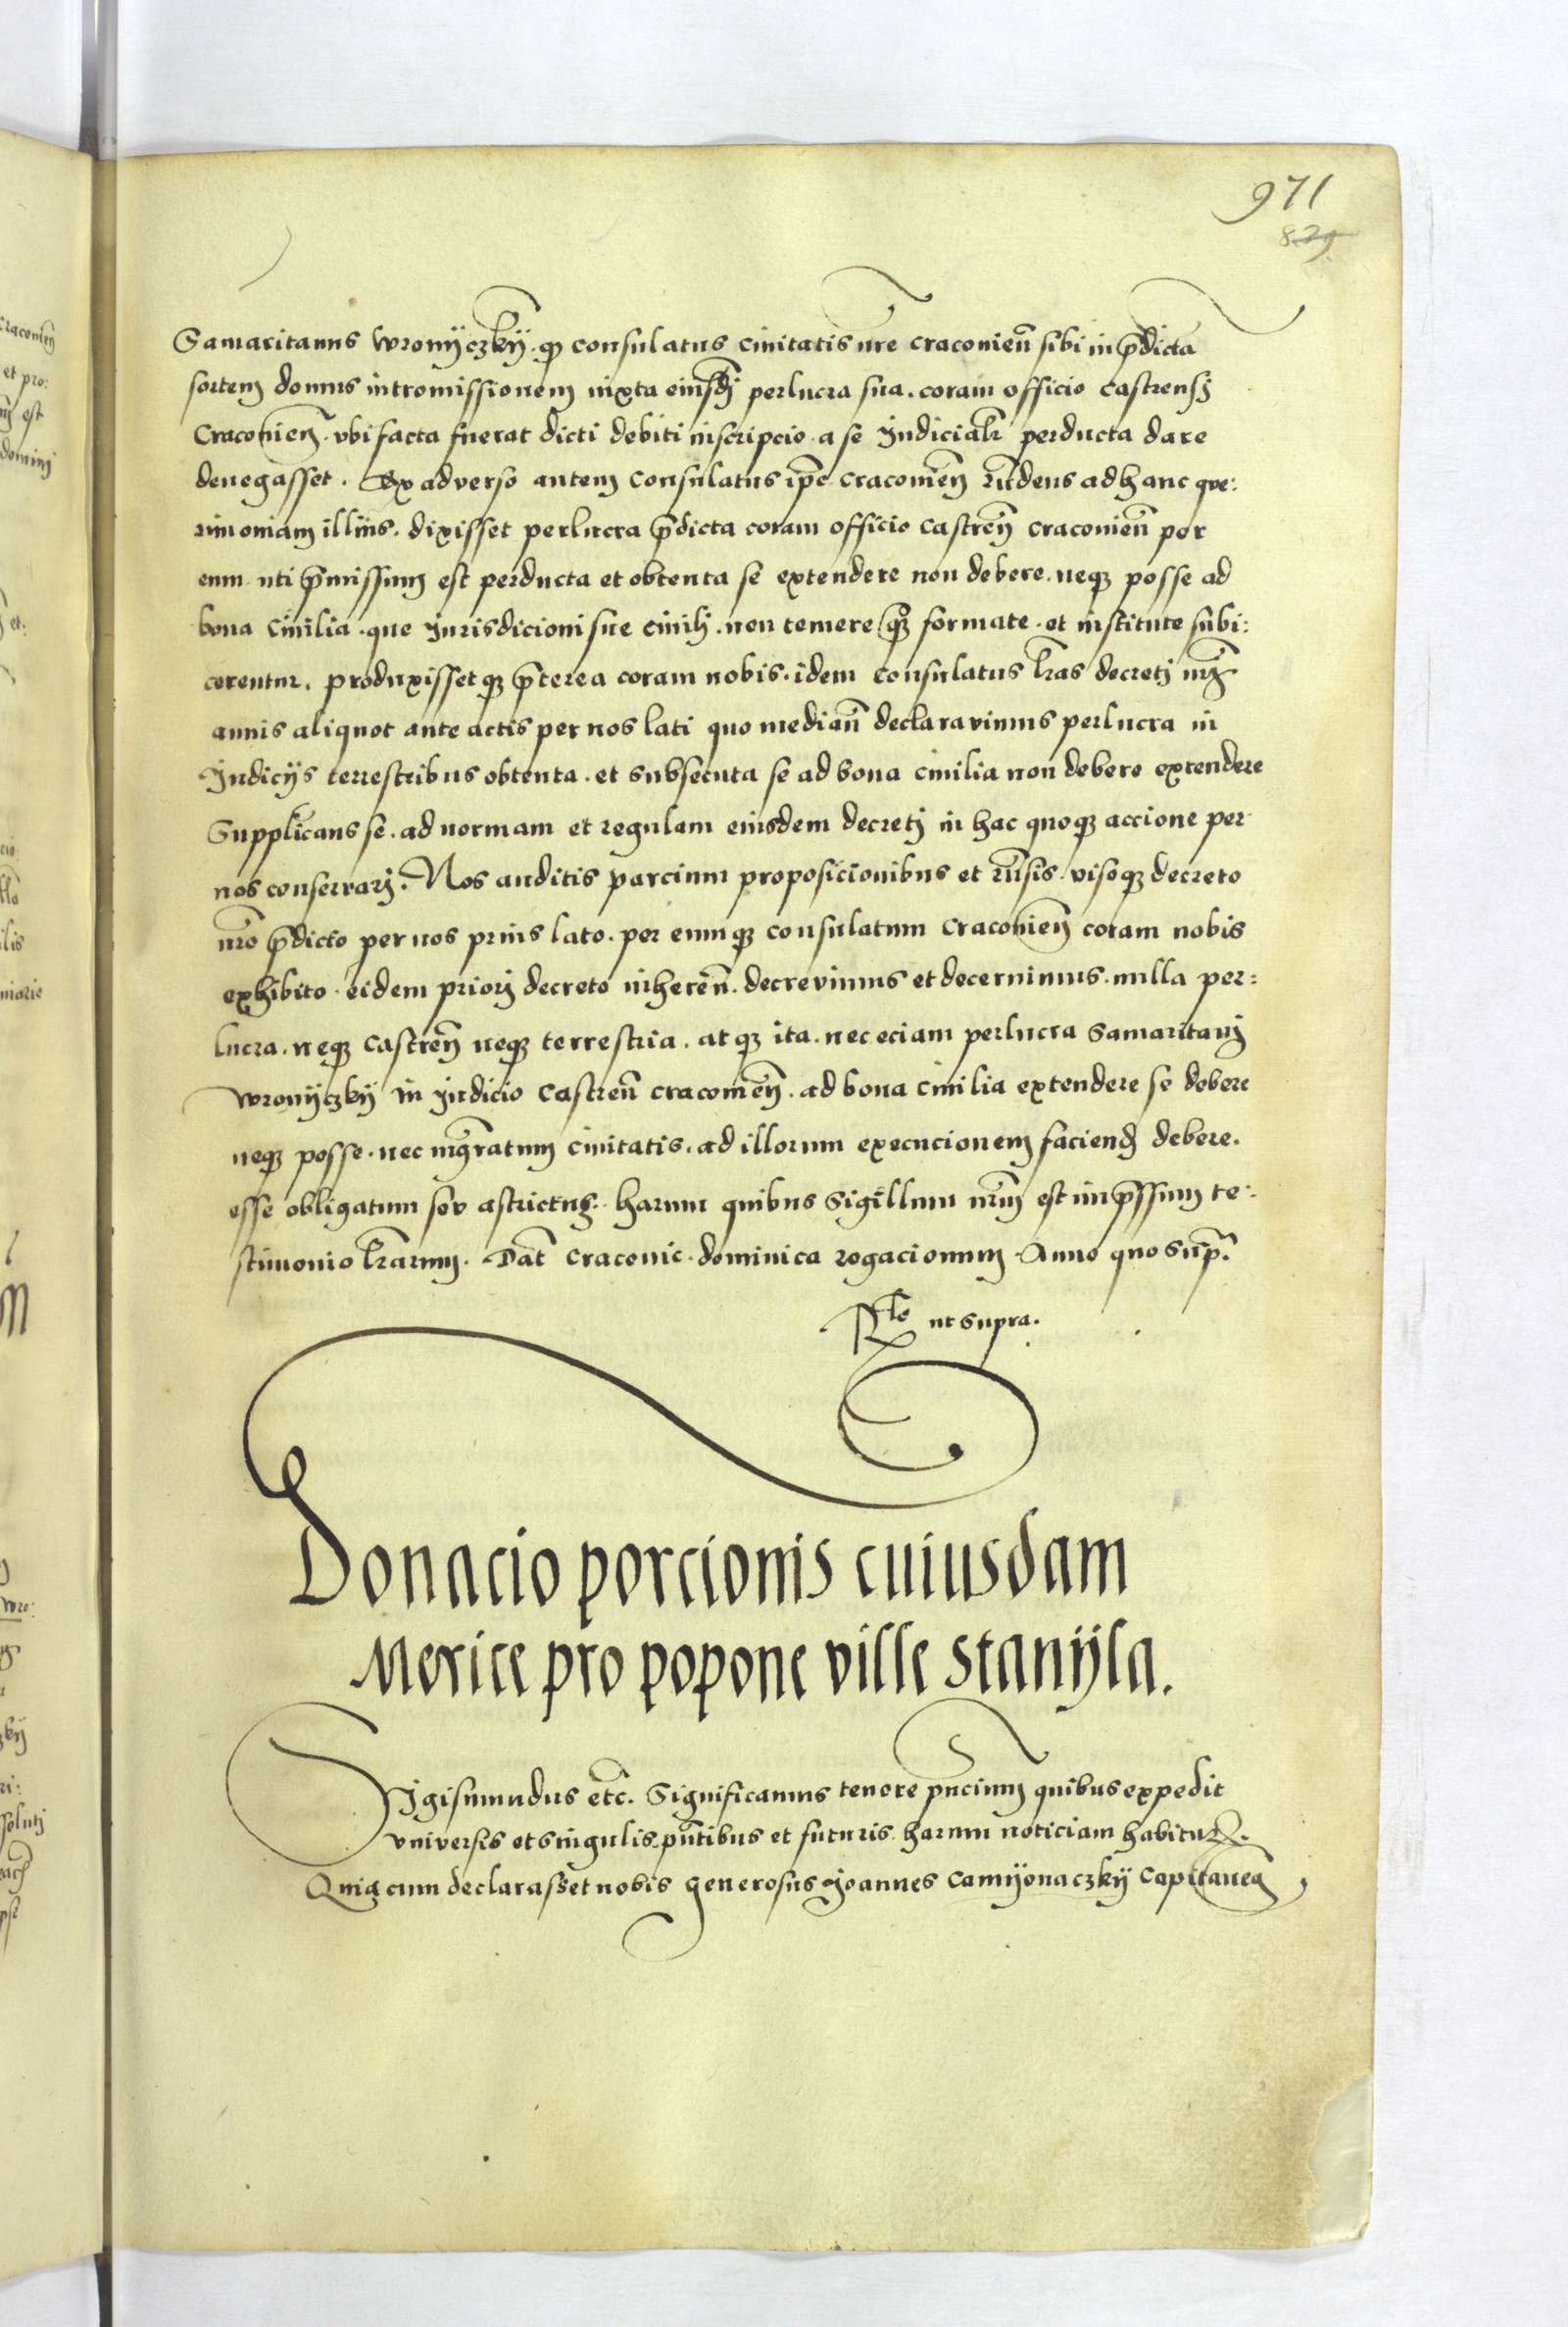 971
829
Samaritanus wronyczky. qꝫ consulatus civitatis nr̃e craconien̄ sibi in p̄dicta
sortem domus intromissionem iuxta eiusdj̄ perlucra sua. coram officio castrensj
Craconien̄. vbi facta fuerat dicti debiti inscripcio. a se Judicialr̄ perducta dare
denegasset. Ex adverso autem consulatus ip̄e craconien̄ rñdens ad hanc que:
rimoniam illius. dixisset perlucra p̄dicta coram officio castren̄ craconien̄ per
eum uti p̄missum est perducta et obtenta se extendere non debere. neqꝫ posse ad
bona civilia. que Jurisdicioni sue civili. non temere formate. et institute subi:
cerentur. produxissetqꝫ p̄terea coram nobis. idem consulatus lr̄as decretj nrj̄
annis aliquot ante actis per nos lati quo median̄ declaravimus perlucra in
Judicijs terrestribus obtenta. et subsecuta se ad bona civilia non debere extendere
Supplicans se. ad normam et regulam eiusdem decretj in hac quoqꝫ accione per
nos conservarj. Nos auditis parcium proposicionibus et rñsis. visoqꝫ decreto
nr̃o p̄dicto per nos prius lato. per eumqꝫ consulatum craconien̄ coram nobis
exhibito. eidem priorj decreto inheren̄. decrevimus et decernimus. nulla per=
lucra. neqꝫ castren̄ neqꝫ terrestria. atqꝫ ita. nec eciam perlucra Samaritanj
wronyczky in Judicio castren̄ craconien̄. ad bona civilia extendere se debere
neqꝫ posse. nec mgr̄atum civitatis. ad illorum execucionem faciend̄ debere.
esse obligatum sev astrictus. harum quibus sigillum nr̃m est imp̄ssum te:
stimonio lr̄arum. Dat̄ craconie. dominica rogacionum. Anno quo sup̄.
Rlo ut supra.
Donacio porcionis cuiusdam
Merice pro popone ville Stanyla.
Sigismundus etc̄. Significamus tenore pn̄cium quibus expedit
vniversis et singulis pn̄tibus et futuris harum noticiam habituꝝ.
Quia cum declarasset nobis generosus Joannes camyonaczky capitaneꝰ